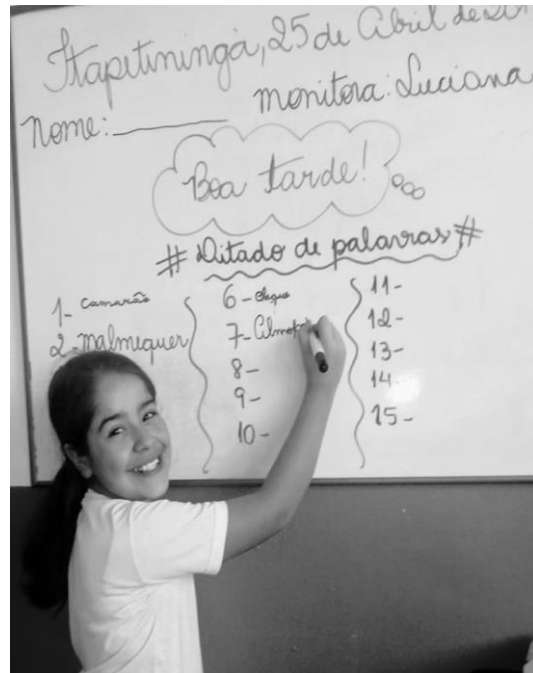 Itapetininga, 25 de Abril de
Nome: monitora: Luciana
Boa tarde!
# Ditado de palavras #
1- camarão
2- malmequer
6-
7-
8-
9-
10-
11-
12-
13-
14-
15-